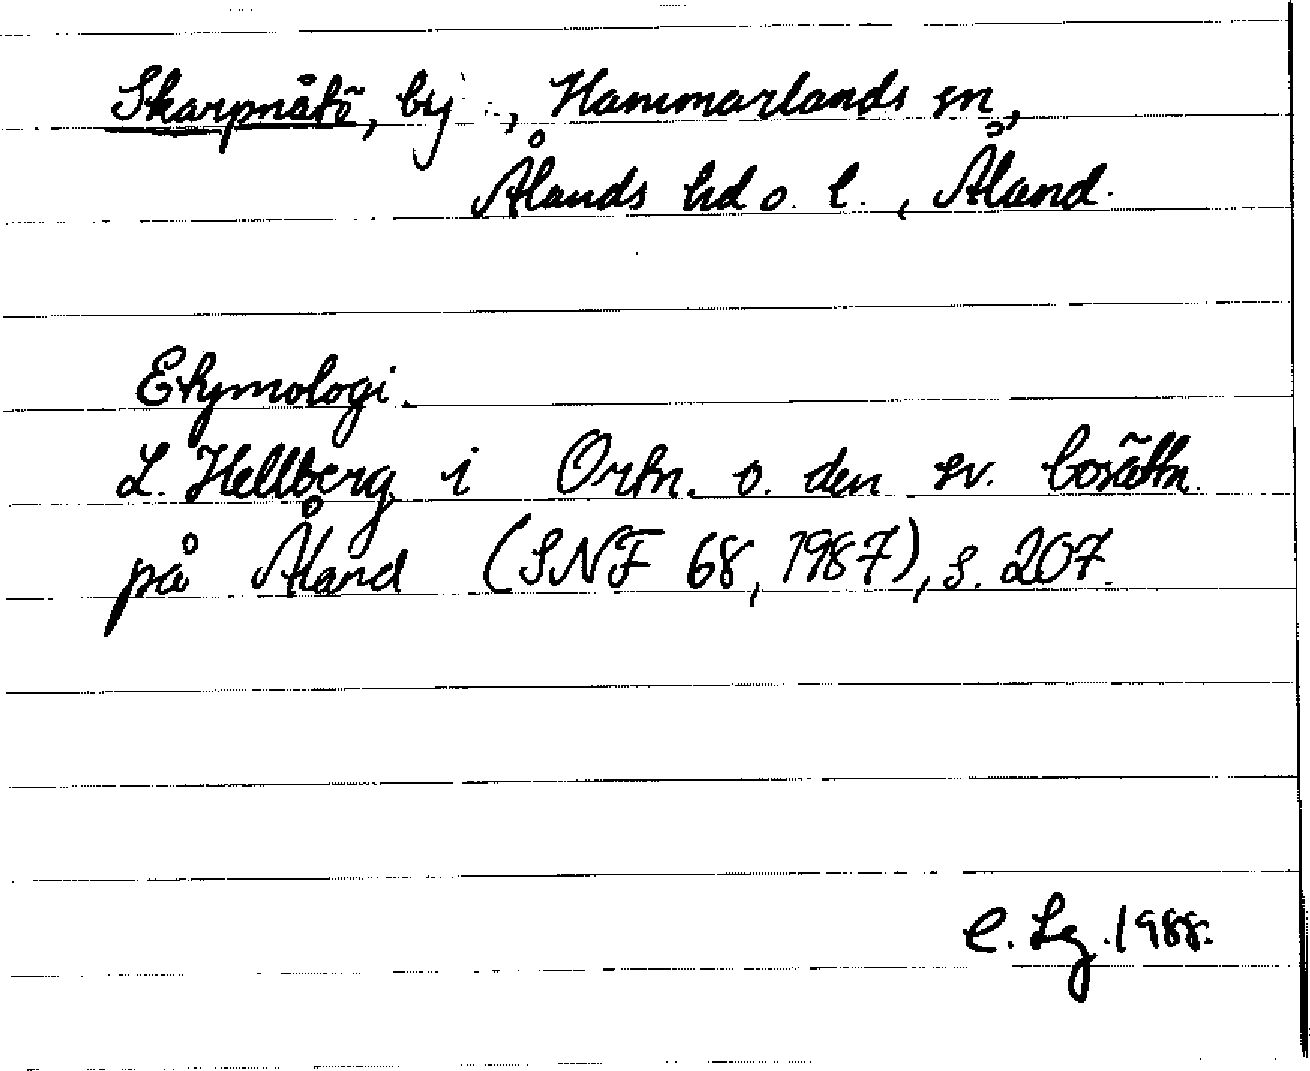 Skarpnåtö, by , Hammarlands sn,
Ålands hd o. l. , Åland.
Etymologi.
L. Hellberg i Ortn. o. den sv. bosättn.
på Åland (SNF 68, 1987), s. 207.
C. Lg. 1988.